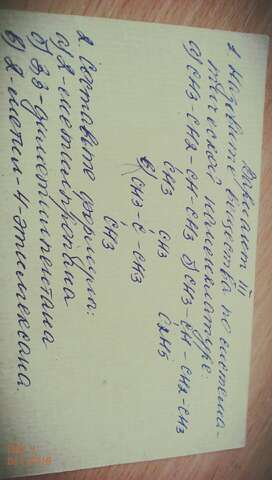 Вариант III
1. Назовите вещества по система-
тической номенклатуре:
а) CH3-CH2-CH-CH3 б) CH3-CH-CH2-CH3
CH3 C2H5
CH3
в) CH3-C-CH3
CH3
2. Составьте формулы:
а) 2-метилпропана
б) 3,3-диметилпентана
в) 2-метил-4-этилгексана.